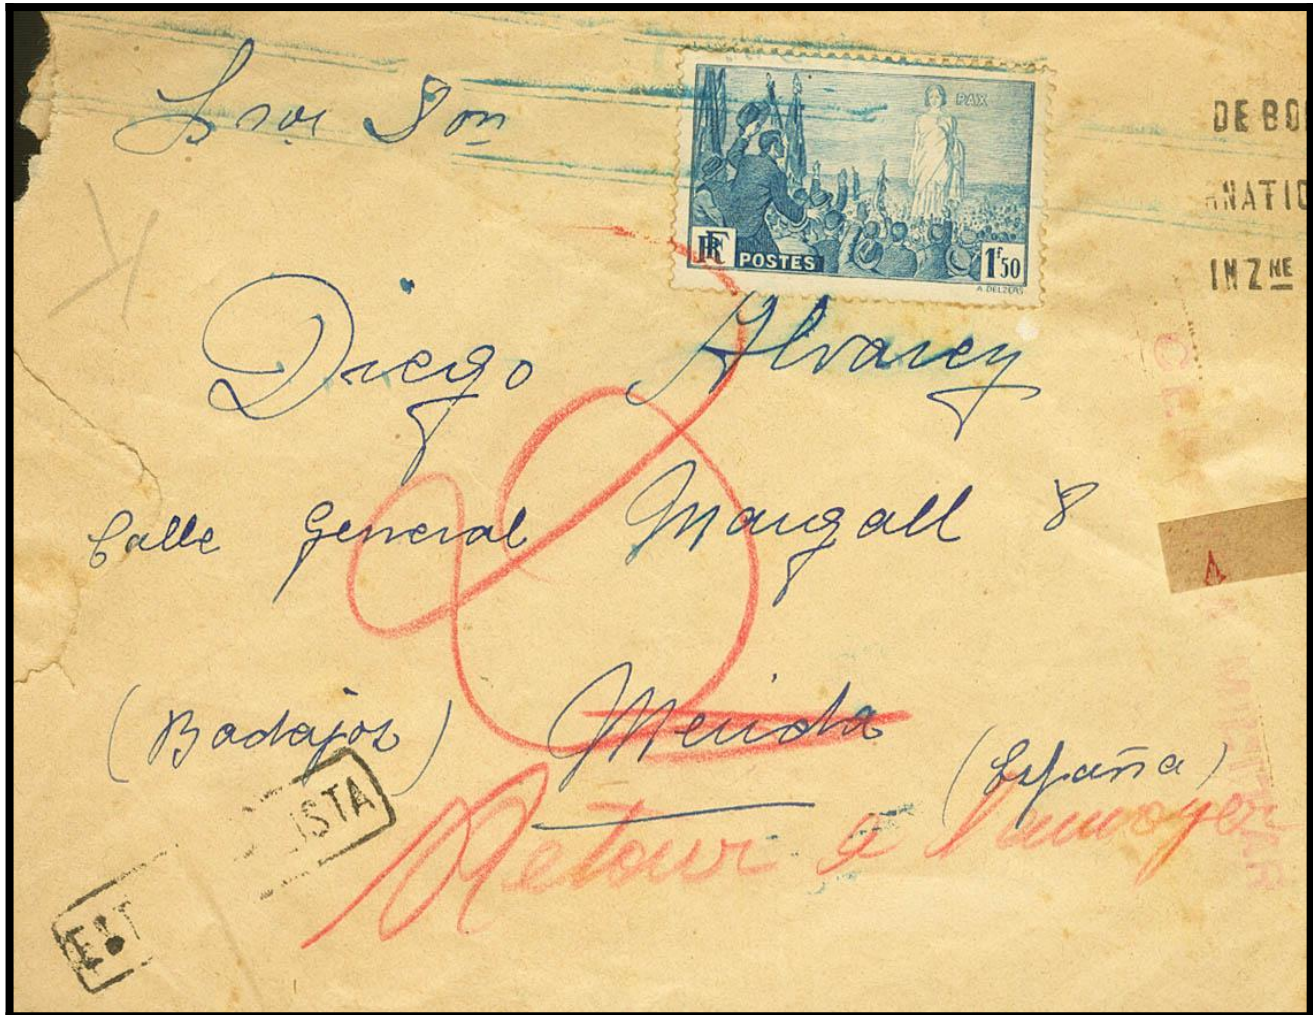 Sror Don
PAX
RF POSTES 1f50
A. DELZERS
DE BO
RNATIO
INZNE
Diego Alvarez
Calle General Margall 8
(Badajoz) Merida
(España)
Retour a l'anvoyer
LISTA